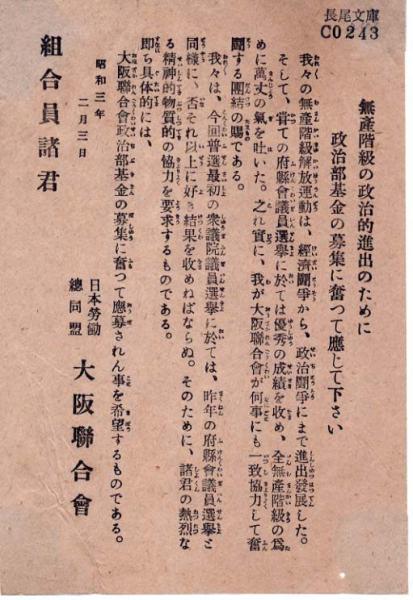 長尾文庫
C0243
無產階級の政治的進出のために
政治部基金の募集に奮つて應じて下さい
我々の無產階級解放運動は、經濟鬪爭から、政治鬪爭にまで進出發展した。
そして、嘗ての府縣會議員選擧に於ては優秀の成績を收め、全無產階級の爲
めに萬丈の氣を吐いた。之れ實に、我が大阪聯合會が何事にも一致協力して奮
鬪する團結の賜である。
我々は、今回普選最初の衆議院議員選擧に於ては、昨年の府縣會議員選擧と
同樣に、否それ以上に好き結果を收めねばならぬ。そのために、諸君の熱烈な
る精神的物質的の協力を要求するものである。
即ち具体的には、
大阪聯合會政治部基金の募集に奮つて應募されん事を希望するものである。
昭和三年
二月三日
日本勞働
總同盟
大阪聯合會
組合員諸君